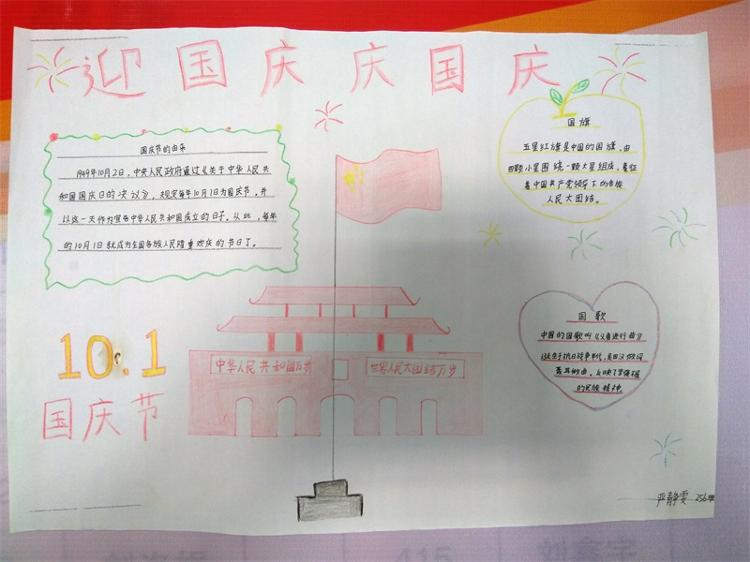 迎国庆庆国庆
国庆节的由来
1949年10月2日,中央人民政府通过《关于中华人民共
和国国庆日的决议》,规定每年10月1日为国庆节,并
以这一天作为宣告中华人民共和国成立的日子。从此,每年
的10月1日就成为全国各族人民隆重欢庆的节日了。
国旗
五星红旗是中国的国旗,由
四颗小星围绕一颗大星组成,象征
着中国共产党领导下的各族
人民大团结。
中华人民共和国万岁
世界人民大团结万岁
10.1
国庆节
国歌
中国的国歌叫《义勇进行曲》
诞生于抗日战争年代,是田汉作词
聂耳作曲,反映了坚强
的民族精神。
严静雯 256班
415